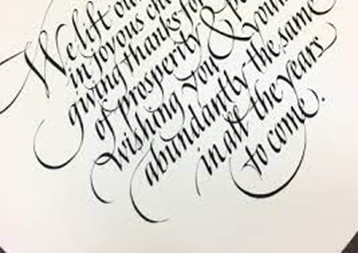 We lift our
in joyous
giving thanks for
of prosperity &
wishing you
abundantly the same
in all the years
to come.